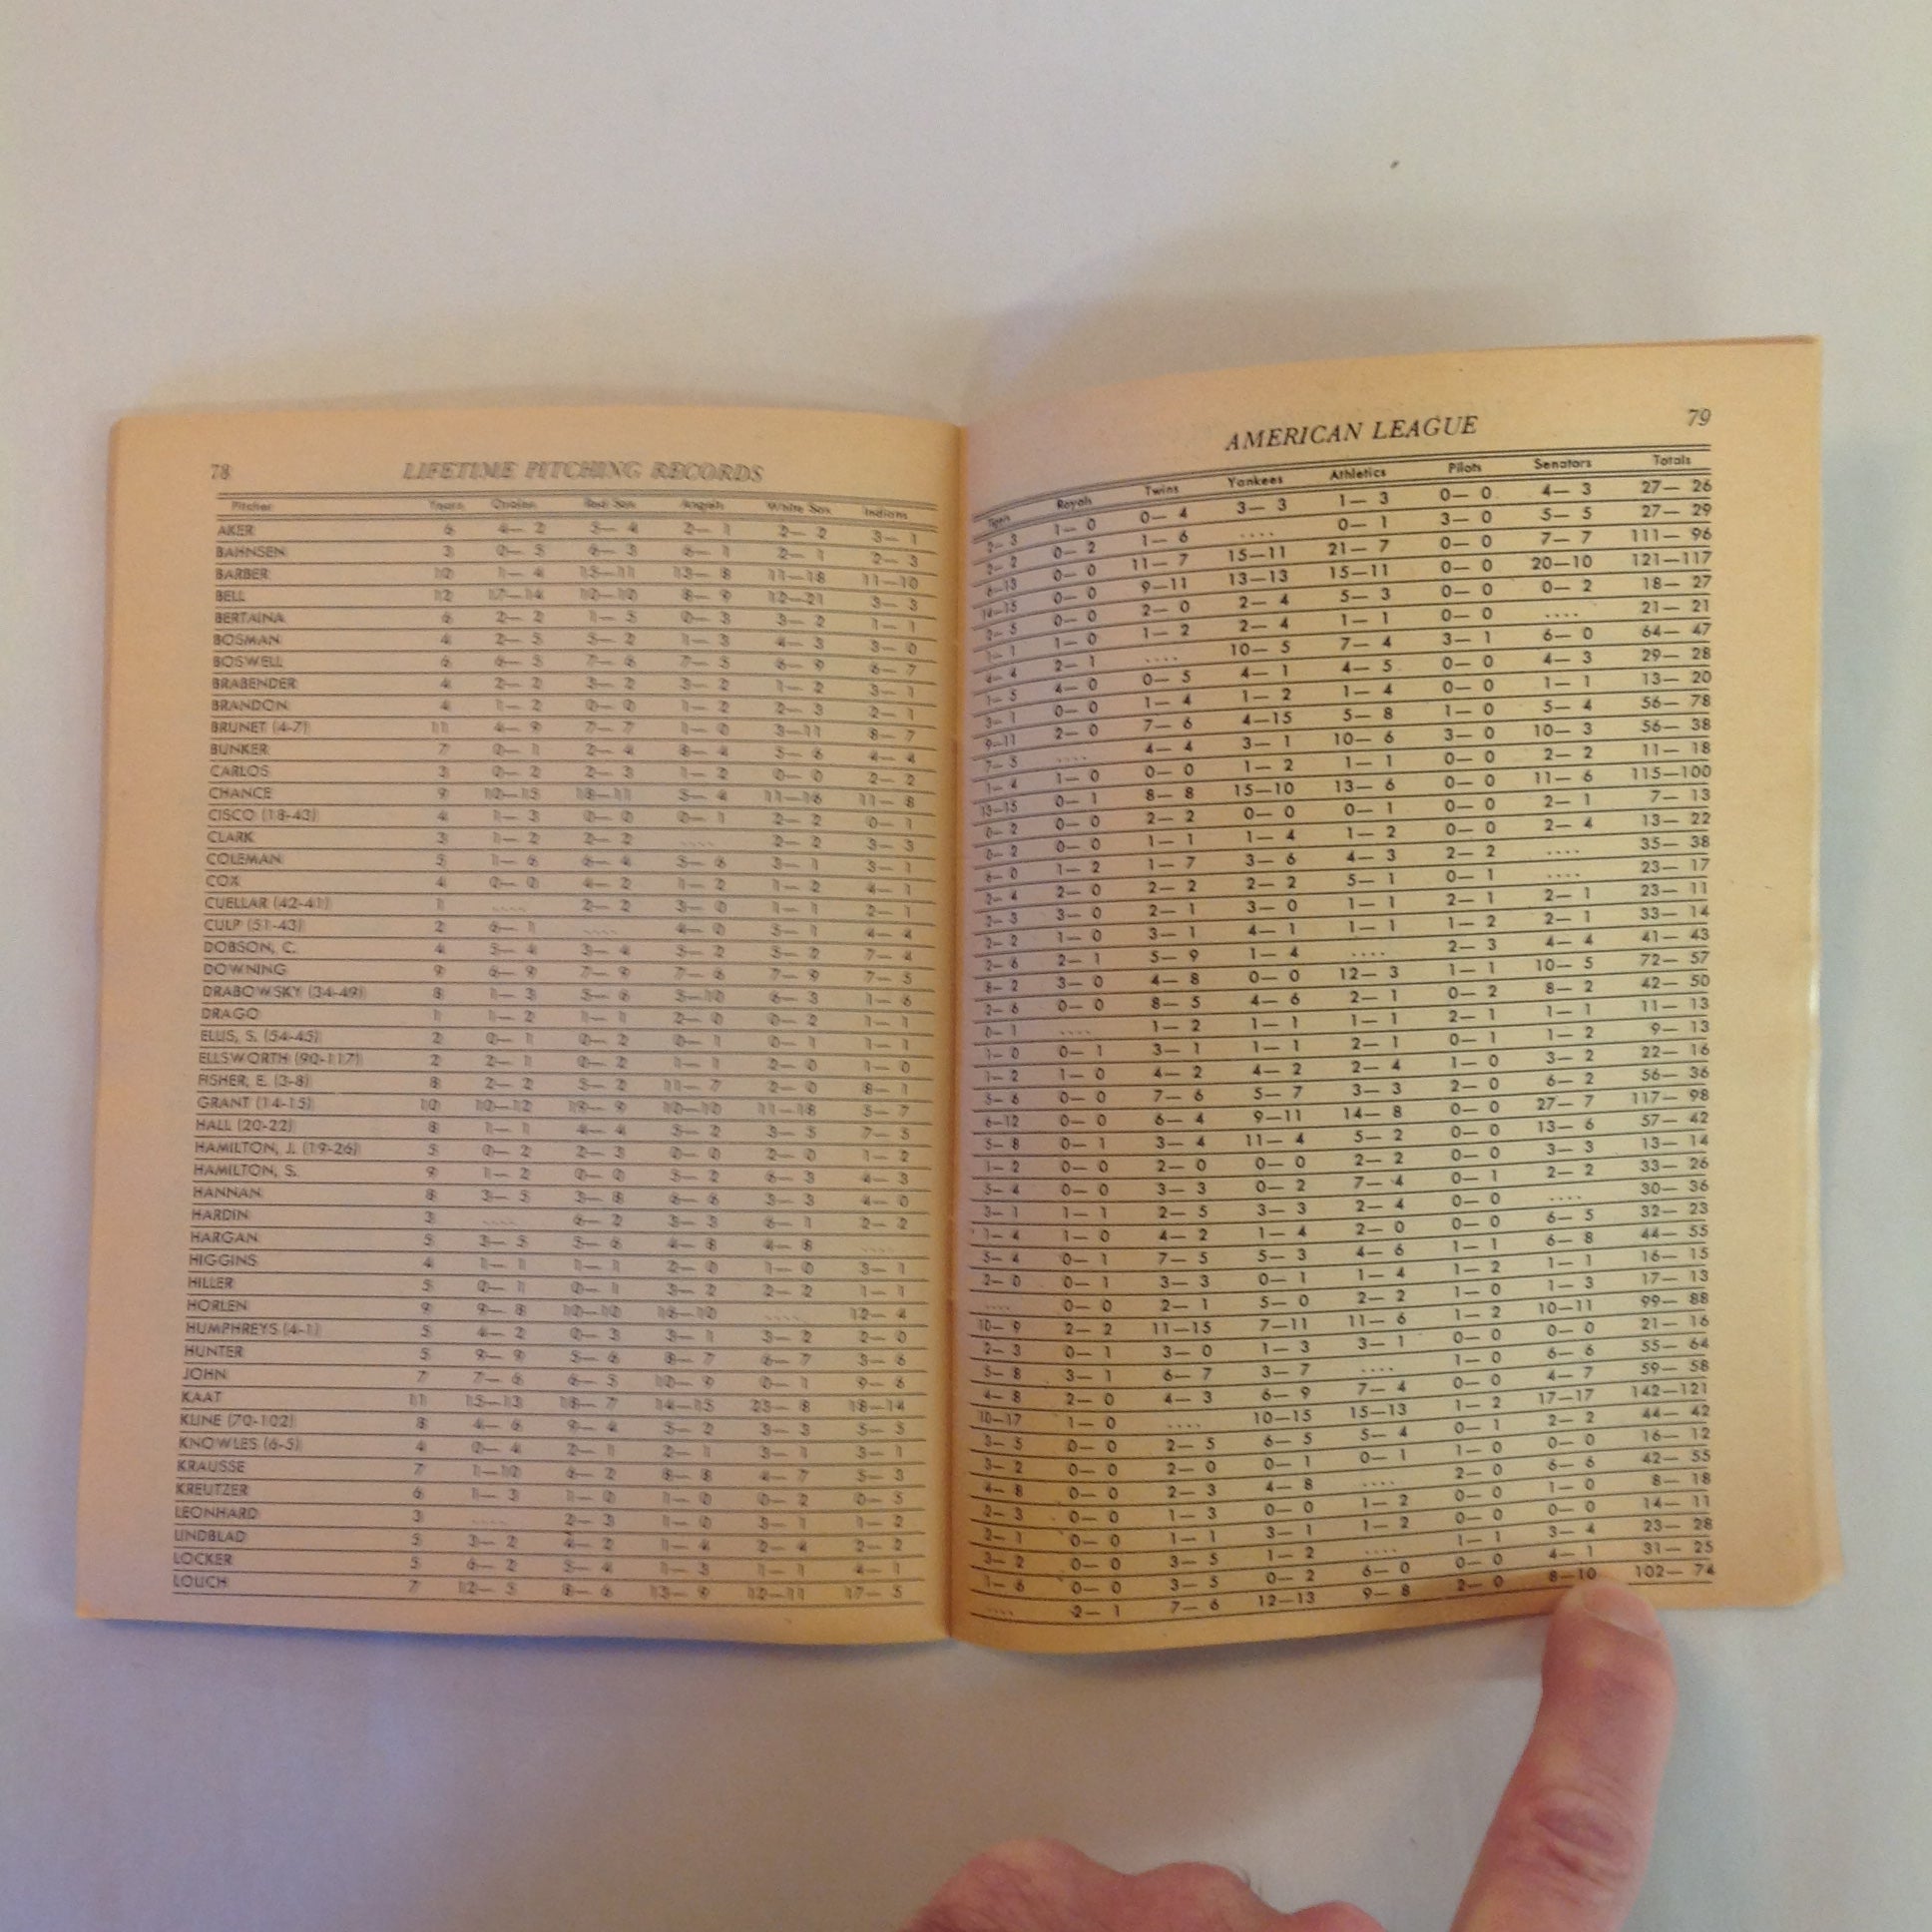 78 LIFETIME PITCHING RECORDS
Pitcher Years Orioles Red Sox Angels White Sox Indians
AKER 6 4— 2 5— 4 2— 1 2— 2 3— 1
BAHNSEN 3 0— 5 6— 3 6— 1 2— 1 2— 3
BARBER 10 1— 4 15—11 13— 8 11—18 11—10
BELL 12 17—14 12—12 8— 9 12—21 3— 3
BERTAINA 6 2— 2 1— 5 0— 3 3— 2 1— 1
BOSMAN 4 2— 5 5— 2 1— 3 4— 3 3— 0
BOSWELL 6 6— 5 7— 6 7— 5 6— 9 6— 7
BRABENDER 4 2— 2 3— 2 3— 2 1— 2 3— 1
BRANDON 4 1— 2 0— 0 1— 2 2— 3 2— 1
BRUNET (4-7) 11 4— 9 7— 7 1— 0 3—11 8— 7
BUNKER 7 0— 1 2— 4 8— 4 5— 6 4— 4
CARLOS 3 0— 2 2— 3 1— 2 0— 0 2— 2
CHANCE 9 10—15 18—11 5— 4 11—16 11— 8
CISCO (18-43) 4 1— 3 0— 0 0— 1 2— 2 0— 1
CLARK 3 1— 2 2— 2 .... 2— 2 3— 3
COLEMAN 5 1— 6 6— 4 5— 6 3— 1 3— 1
COX 4 0— 0 4— 2 1— 2 1— 2 4— 1
CUELLAR (42-41) 1 .... 2— 2 3— 0 1— 1 2— 1
CULP (51-43) 2 6— 1 .... 4— 0 5— 1 4— 4
DOBSON, C. 4 5— 4 3— 4 5— 2 5— 2 7— 4
DOWNING 9 6— 9 7— 9 7— 6 7— 9 7— 5
DRABOWSKY (34-49) 8 1— 3 5— 6 5—10 6— 3 1— 6
DRAGO 1 1— 2 1— 1 2— 0 0— 2 1— 1
ELLIS, S. (54-45) 2 0— 1 0— 2 0— 1 0— 1 1— 1
ELLSWORTH (90-117) 2 2— 1 0— 2 1— 1 2— 0 1— 0
FISHER, E. (3-8) 8 2— 2 5— 2 11— 7 2— 0 8— 1
GRANT (14-15) 10 10—12 19— 9 10—10 11—18 5— 7
HALL (20-22) 8 1— 1 4— 4 5— 2 3— 5 7— 5
HAMILTON, J. (19-26) 5 0— 2 2— 3 0— 0 2— 0 1— 2
HAMILTON, S. 9 1— 2 0— 0 5— 2 6— 3 4— 3
HANNAN 8 3— 5 3— 8 6— 6 3— 3 4— 0
HARDIN 3 .... 6— 2 3— 3 6— 1 2— 2
HARGAN 5 3— 5 5— 6 4— 8 4— 8 ....
HIGGINS 4 1— 1 1— 1 2— 0 1— 0 3— 1
HILLER 5 0— 1 0— 1 3— 2 2— 2 1— 1
HORLEN 9 9— 8 10—10 18—10 .... 12— 4
HUMPHREYS (4-1) 5 4— 2 0— 3 3— 1 3— 2 2— 0
HUNTER 5 9— 9 5— 6 8— 7 6— 7 3— 6
JOHN 7 7— 6 6— 5 10— 9 0— 1 9— 6
KAAT 11 15—13 18— 7 14—15 25— 8 18—14
KLINE (70-102) 8 4— 6 9— 4 5— 2 3— 3 5— 5
KNOWLES (6-5) 4 0— 4 2— 1 2— 1 3— 1 3— 1
KRAUSSE 7 1—10 6— 2 8— 8 4— 7 5— 3
KREUTZER 6 1— 3 1— 0 1— 0 0— 2 0— 5
LEONHARD 3 .... 2— 3 1— 0 3— 1 1— 2
LINDBLAD 5 3— 2 4— 2 1— 4 2— 4 2— 2
LOCKER 5 6— 2 5— 4 1— 3 1— 1 4— 1
LOLICH 7 12— 5 8— 6 13— 9 12—11 17— 5
AMERICAN LEAGUE 79
Tigers Royals Twins Yankees Athletics Pilots Senators Totals
2— 3 1— 0 0— 4 3— 3 1— 3 0— 0 4— 3 27— 26
2— 2 0— 2 1— 6 .... 0— 1 3— 0 5— 5 27— 29
6—13 0— 0 11— 7 15—11 21— 7 0— 0 7— 7 111— 96
14—15 0— 0 9—11 13—13 15—11 0— 0 20—10 121—117
2— 5 0— 0 2— 0 2— 4 5— 3 0— 0 0— 2 18— 27
1— 1 1— 0 1— 2 2— 4 1— 1 0— 0 .... 21— 21
4— 4 2— 1 .... 10— 5 7— 4 3— 1 6— 0 64— 47
1— 5 4— 0 0— 5 4— 1 4— 5 0— 0 4— 3 29— 28
3— 1 0— 0 1— 4 1— 2 1— 4 0— 0 1— 1 13— 20
9—11 2— 0 7— 6 4—15 5— 8 1— 0 5— 4 56— 78
7— 5 .... 4— 4 3— 1 10— 6 3— 0 10— 3 56— 38
1— 4 1— 0 0— 0 1— 2 1— 1 0— 0 2— 2 11— 18
13—15 0— 1 8— 8 15—10 13— 6 0— 0 11— 6 115—100
0— 2 0— 0 2— 2 0— 0 0— 1 0— 0 2— 1 7— 13
0— 2 0— 0 1— 1 1— 4 1— 2 0— 0 2— 4 13— 22
6— 0 1— 2 1— 7 3— 6 4— 3 2— 2 .... 35— 38
2— 4 2— 0 2— 2 2— 2 5— 1 0— 1 .... 23— 17
2— 3 3— 0 2— 1 3— 0 1— 1 2— 1 2— 1 23— 11
2— 2 1— 0 3— 1 4— 1 1— 1 1— 2 2— 1 33— 14
2— 6 2— 1 5— 9 1— 4 .... 2— 3 4— 4 41— 43
8— 2 3— 0 4— 8 0— 0 12— 3 1— 1 10— 5 72— 57
2— 6 0— 0 8— 5 4— 6 2— 1 0— 2 8— 2 42— 50
0— 1 .... 1— 2 1— 1 1— 1 2— 1 1— 1 11— 13
1— 0 0— 1 3— 1 1— 1 2— 1 0— 1 1— 2 9— 13
1— 2 1— 0 4— 2 4— 2 2— 4 1— 0 3— 2 22— 16
5— 6 0— 0 7— 6 5— 7 3— 3 2— 0 6— 2 56— 36
6—12 0— 0 6— 4 9—11 14— 8 0— 0 27— 7 117— 98
5— 8 0— 1 3— 4 11— 4 5— 2 0— 0 13— 6 57— 42
1— 2 0— 0 2— 0 0— 0 2— 2 0— 0 3— 3 13— 14
5— 4 0— 0 3— 3 0— 2 7— 4 0— 1 2— 2 33— 26
3— 1 1— 1 2— 5 3— 3 2— 4 0— 0 .... 30— 36
1— 4 1— 0 4— 2 1— 4 2— 0 0— 0 6— 5 32— 23
5— 4 0— 1 7— 5 5— 3 4— 6 1— 1 6— 8 44— 55
2— 0 0— 1 3— 3 0— 1 1— 4 1— 2 1— 1 16— 15
.... 0— 0 2— 1 5— 0 2— 2 1— 0 1— 3 17— 13
10— 9 2— 2 11—15 7—11 11— 6 1— 2 10—11 99— 88
2— 3 0— 1 3— 0 1— 3 3— 1 0— 0 0— 0 21— 16
5— 8 3— 1 6— 7 3— 7 .... 1— 0 6— 6 55— 64
4— 8 2— 0 4— 3 6— 9 7— 4 0— 0 4— 7 59— 58
10—17 1— 0 .... 10—15 15—13 1— 2 17—17 142—121
3— 5 0— 0 2— 5 6— 5 5— 4 0— 1 2— 2 44— 42
3— 2 0— 0 2— 0 0— 1 0— 1 1— 0 0— 0 16— 12
4— 8 0— 0 2— 3 4— 8 .... 2— 0 6— 6 42— 55
2— 3 0— 0 1— 3 0— 0 1— 2 0— 0 1— 0 8— 18
2— 1 0— 0 1— 1 3— 1 1— 2 0— 0 0— 0 14— 11
3— 2 0— 0 3— 5 1— 2 .... 1— 1 3— 4 23— 28
1— 6 0— 0 3— 5 0— 2 6— 0 0— 0 4— 1 31— 25
.... 2— 1 7— 6 12—13 9— 8 2— 0 8—10 102— 74